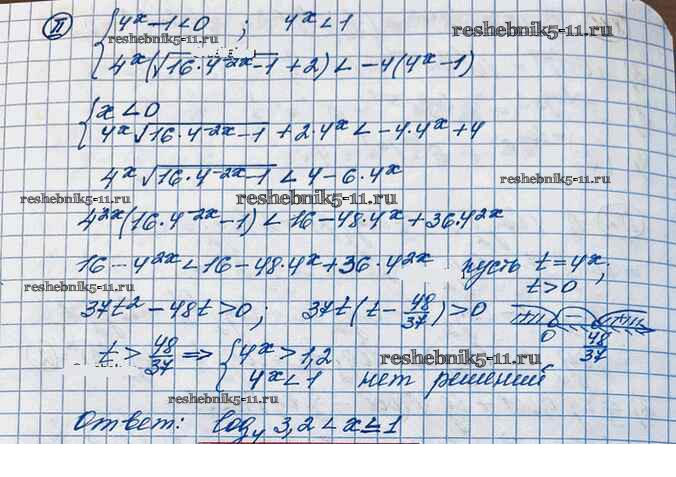 II) { 4^x - 1 < 0 ; 4^x < 1
reshebnik5-11.ru
reshebnik5-11.ru
4^x(√(16·4^(-2x) - 1) + 2) < -4(4^x - 1)
{ x < 0
4^x √(16·4^(-2x) - 1) + 2·4^x < -4·4^x + 4
4^x √(16·4^(-2x) - 1) < 4 - 6·4^x
reshebnik5-11.ru
reshebnik5-11.ru
reshebnik5-11.ru
4^2x (16·4^(-2x) - 1) < 16 - 48·4^x + 36·4^2x
16 - 4^2x < 16 - 48·4^x + 36·4^2x пусть t = 4^x;
t > 0
reshebnik5-11.ru
37t² - 48t > 0; 37t(t - 48/37) > 0
0 48/37
t > 48/37 ⇒ { 4^x > 1,2
reshebnik5-11.ru
4^x < 1 нет решений
reshebnik5-11.ru
Ответ: log₄ 3,2 < x ≤ 1